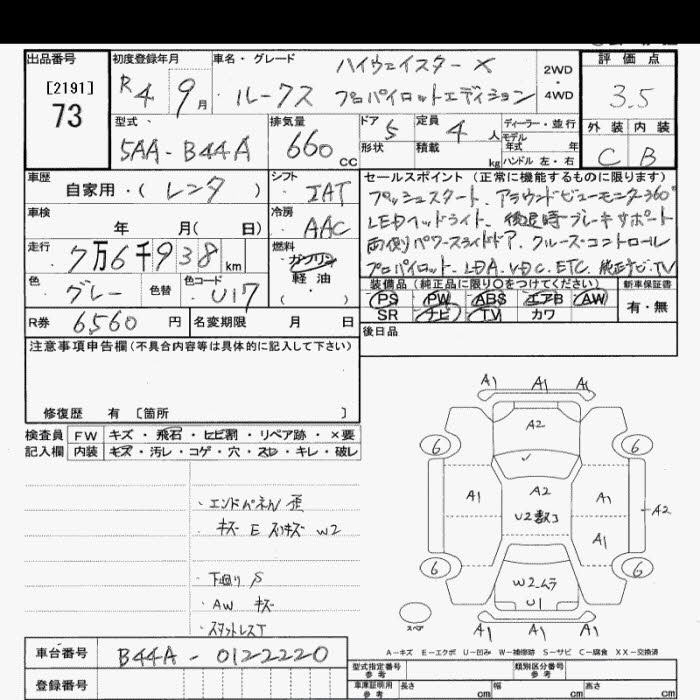 出品番号
[2191]
73
初度登録年月
R4 9月
車名・グレード
ハイウェイスター X
ルークス プロパイロットエディション
2WD
・
4WD
評価点
3.5
外装 内装
C B
型式
5AA-B44A
排気量
660cc
ドア 5
形状
定員 4人
積載 kg
ディーラー・並行
モデル年式 年
ハンドル 左・右
車歴
自家用・(レンタ)
シフト
IAT
車検
年 月(日)
冷房
AAC
走行
7万6千938km
燃料
ガソリン
軽油
色
グレー
色替
色コード
U17
R券 6560円
名変期限 月 日
セールスポイント(正常に機能するものに限ります)
プッシュスタート、アラウンドビューモニタ360°
LEDヘッドライト、後退時ブレーキサポート
両側パワースライドドア、クルーズコントロール
プロパイロット、LDA、VDC、ETC、純正ナビ、TV
装備品(純正品に限り○をつけてください)
新車保証書
PS PW ABS エアB AW
SR ナビ TV カワ
有・無
後日品
注意事項申告欄(不具合内容等は具体的に記入して下さい)
修復歴 有 〔箇所 〕
検査員記入欄
FW キズ・飛石・ヒビ割・リペア跡・×要
内装 キズ・汚レ・コゲ・穴・スレ・キレ・破レ
・エンドパネル歪
・キズ E スリキズ W2
・下廻り S
・AW キズ
・スタットレスT
A1 A1 A1
A2
6 6
A1 A2 A1
U2数コ
A2
A1
6 6
W2ムラ
U1
スペア
A1 A1 A1
A-キズ E-エクボ U-凹み W-補修跡 S-サビ C-腐食 XX-交換済
車台番号
B44A-0122220
登録番号
型式指定番号
参考
類別区分番号
車庫証明用
参考
長さ cm 幅 cm 高さ cm